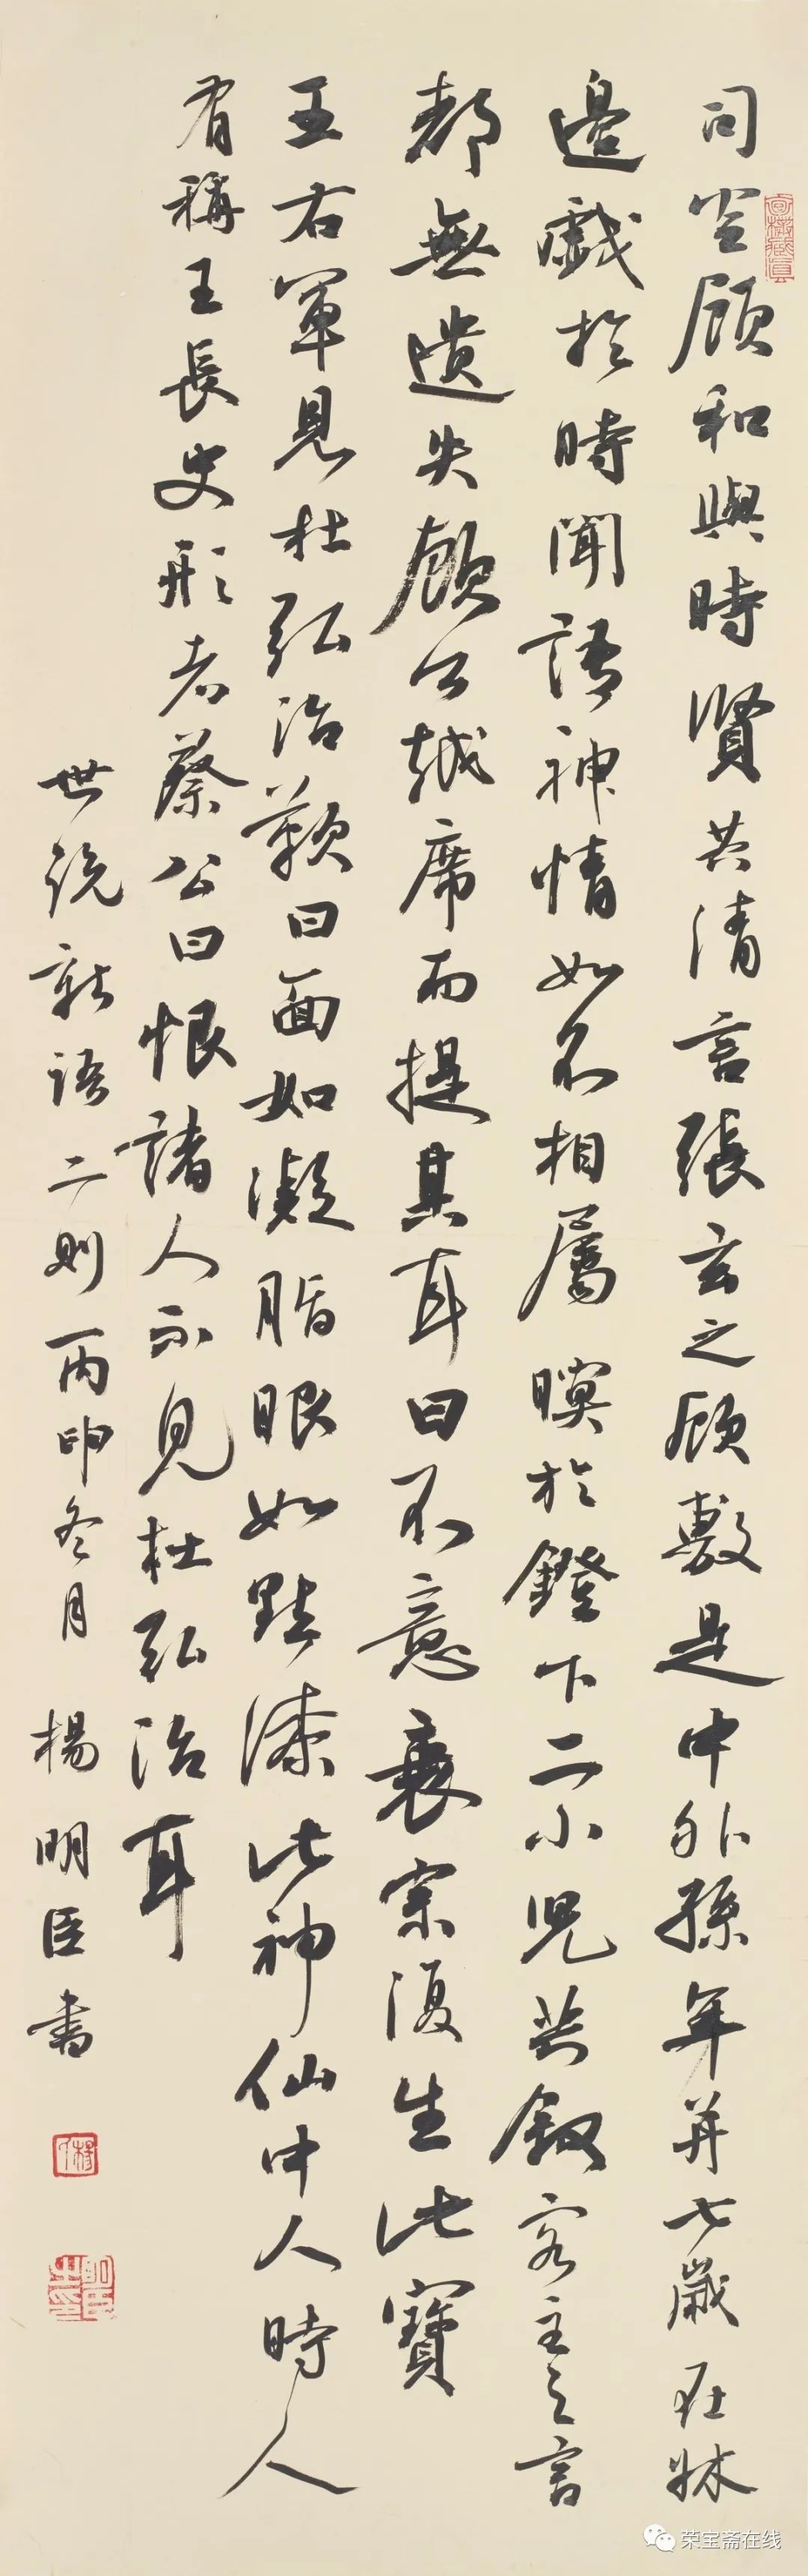 司空顧和與時賢共清言張玄之顧敷是中外孫年并七歲在牀
邊戲於時聞語神情如不相屬瞑於鐙下二小児共敘客主之言
都無遺失顧公越席而提其耳曰不意衰宗復生此寶
王右軍見杜弘治歎曰面如凝脂眼如點漆此神仙中人時人
有稱王長史形者蔡公曰恨諸人不見杜弘治耳
世説新語二則丙申冬月 楊明臣書
荣宝斋在线